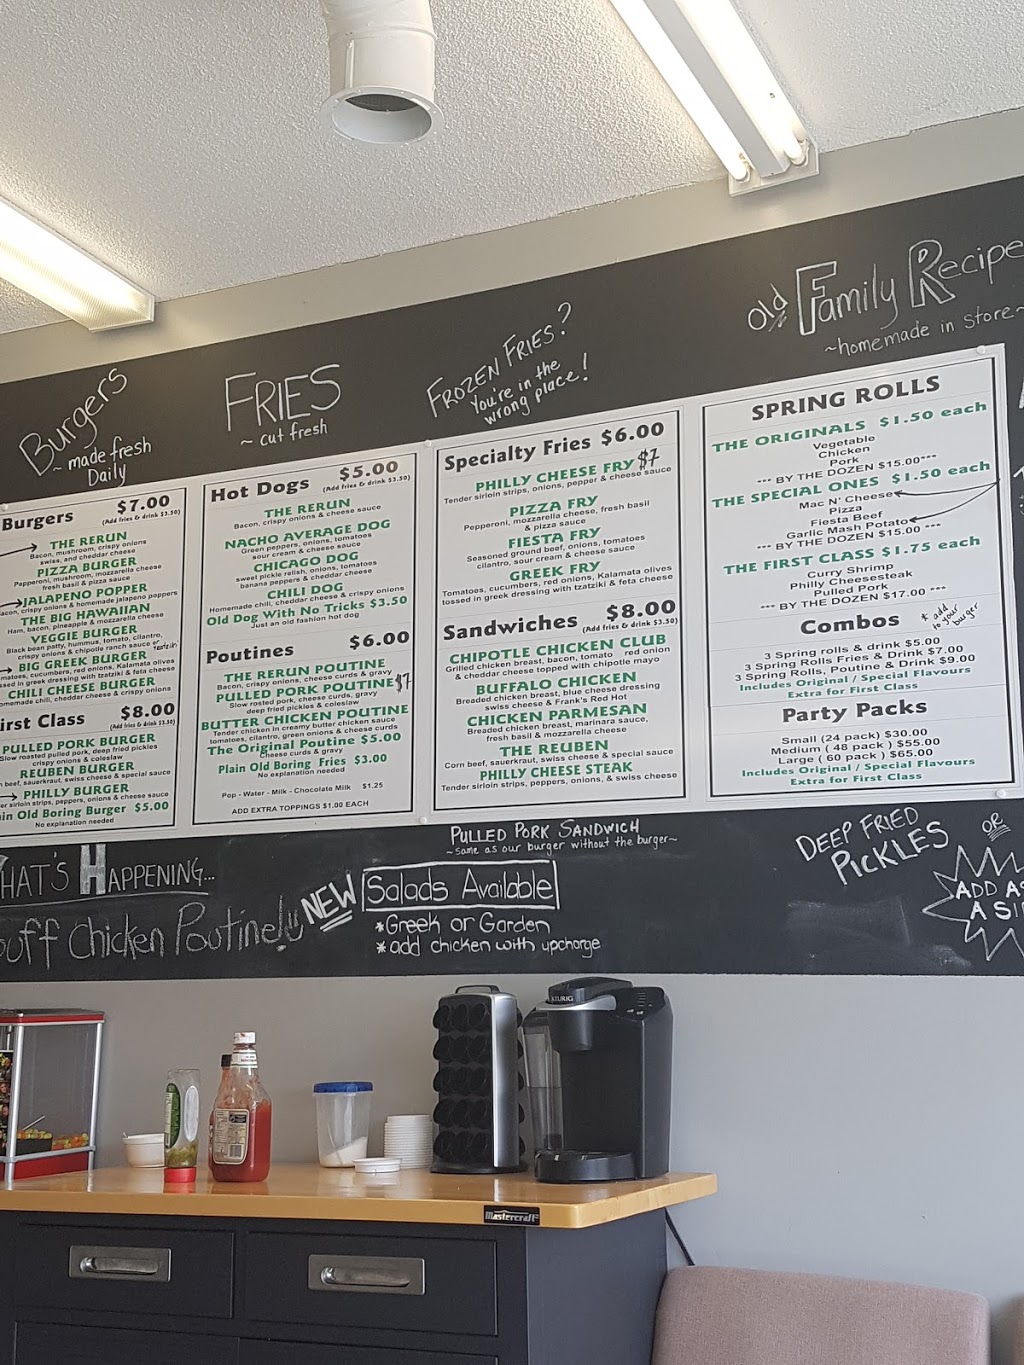 Burgers
~ made fresh
Daily
FRIES
~ cut fresh
FROZEN FRIES?
You're in the
wrong place!
Old Family Recipe
~homemade in store~
Burgers $7.00
(Add fries & drink $3.50)
THE RERUN
Bacon, mushroom, crispy onions
swiss, and cheddar cheese
PIZZA BURGER
Pepperoni, mushroom, mozzarella cheese
fresh basil & pizza sauce
JALAPENO POPPER
Bacon, crispy onions & homemade jalapeno poppers
THE BIG HAWAIIAN
Ham, bacon, pineapple & mozzarella cheese
VEGGIE BURGER
Black bean patty, hummus, tomato, cilantro,
crispy onions & chipotle ranch sauce
BIG GREEK BURGER
cucumbers, red onions, Kalamata olives
in greek dressing with tzatziki & feta cheese
CHILI CHEESE BURGER
chili, cheddar cheese & crispy onions
First Class $8.00
(Add fries & drink $3.50)
PULLED PORK BURGER
Slow roasted pulled pork, deep fried pickles
crispy onions & coleslaw
REUBEN BURGER
beef, sauerkraut, swiss cheese & special sauce
PHILLY BURGER
sirloin strips, peppers, onions & cheese sauce
Plain Old Boring Burger $5.00
No explanation needed
Hot Dogs $5.00
(Add fries & drink $3.50)
THE RERUN
Bacon, crispy onions & cheese sauce
NACHO AVERAGE DOG
Green peppers, onions, tomatoes
sour cream & cheese sauce
CHICAGO DOG
sweet pickle relish, onions, tomatoes
banana peppers & cheddar cheese
CHILI DOG
Homemade chili, cheddar cheese & crispy onions
Old Dog With No Tricks $3.50
Just an old fashion hot dog
Poutines $6.00
THE RERUN POUTINE
Bacon, crispy onions, cheese curds & gravy
PULLED PORK POUTINE $7
Slow rosted pork, cheese curds, gravy
deep fried pickles & coleslaw
BUTTER CHICKEN POUTINE
Tender chicken in creamy butter chicken sauce
tomatoes, cilantro, green onions & cheese curds
The Original Poutine $5.00
Cheese curds & gravy
Plain Old Boring Fries $3.00
No explanation needed
Pop - Water - Milk - Chocolate Milk $1.25
ADD EXTRA TOPPINGS $1.00 EACH
Specialty Fries $6.00
PHILLY CHEESE FRY $7
Tender sirloin strips, onions, pepper & cheese sauce
PIZZA FRY
Pepperoni, mozzarella cheese, fresh basil
& pizza sauce
FIESTA FRY
Seasoned ground beef, onions, tomatoes
cilantro, sour cream & cheese sauce
GREEK FRY
Tomatoes, cucumbers, red onions, Kalamata olives
tossed in greek dressing with tzatziki & feta cheese
Sandwiches $8.00
(Add fries & drink $3.50)
CHIPOTLE CHICKEN CLUB
Grilled chicken breast, bacon, tomato red onion
& cheddar cheese topped with chipotle mayo
BUFFALO CHICKEN
Breaded chicken breast, blue cheese dressing
swiss cheese & Frank's Red Hot
CHICKEN PARMESAN
Breaded chicken breast, marinara sauce,
fresh basil & mozzarella cheese
THE REUBEN
Corn beef, sauerkraut, swiss cheese & special sauce
PHILLY CHEESE STEAK
Tender sirloin strips, peppers, onions, & swiss cheese
SPRING ROLLS
THE ORIGINALS $1.50 each
Vegetable
Chicken
Pork
--- BY THE DOZEN $15.00 ---
THE SPECIAL ONES $1.50 each
Mac N' Cheese
Pizza
Fiesta Beef
Garlic Mash Potato
--- BY THE DOZEN $15.00 ---
THE FIRST CLASS $1.75 each
Curry Shrimp
Philly Cheesesteak
Pulled Pork
--- BY THE DOZEN $17.00 ---
Combos
* add
to your
burger
3 Spring rolls & drink $5.00
3 Spring Rolls Fries & Drink $7.00
3 Spring Rolls, Poutine & Drink $9.00
Includes Original / Special Flavours
Extra for First Class
Party Packs
Small (24 pack) $30.00
Medium ( 48 pack ) $55.00
Large ( 60 pack ) $65.00
Includes Original / Special Flavours
Extra for First Class
PULLED PORK SANDWICH
~same as our burger without the burger~
WHAT'S HAPPENING...
Buff Chicken Poutine
NEW
Salads Available
*Greek or Garden
*add chicken with upcharge
DEEP FRIED
PICKLES
OR
ADD AS
A SI
KEURIG
Mastercraft